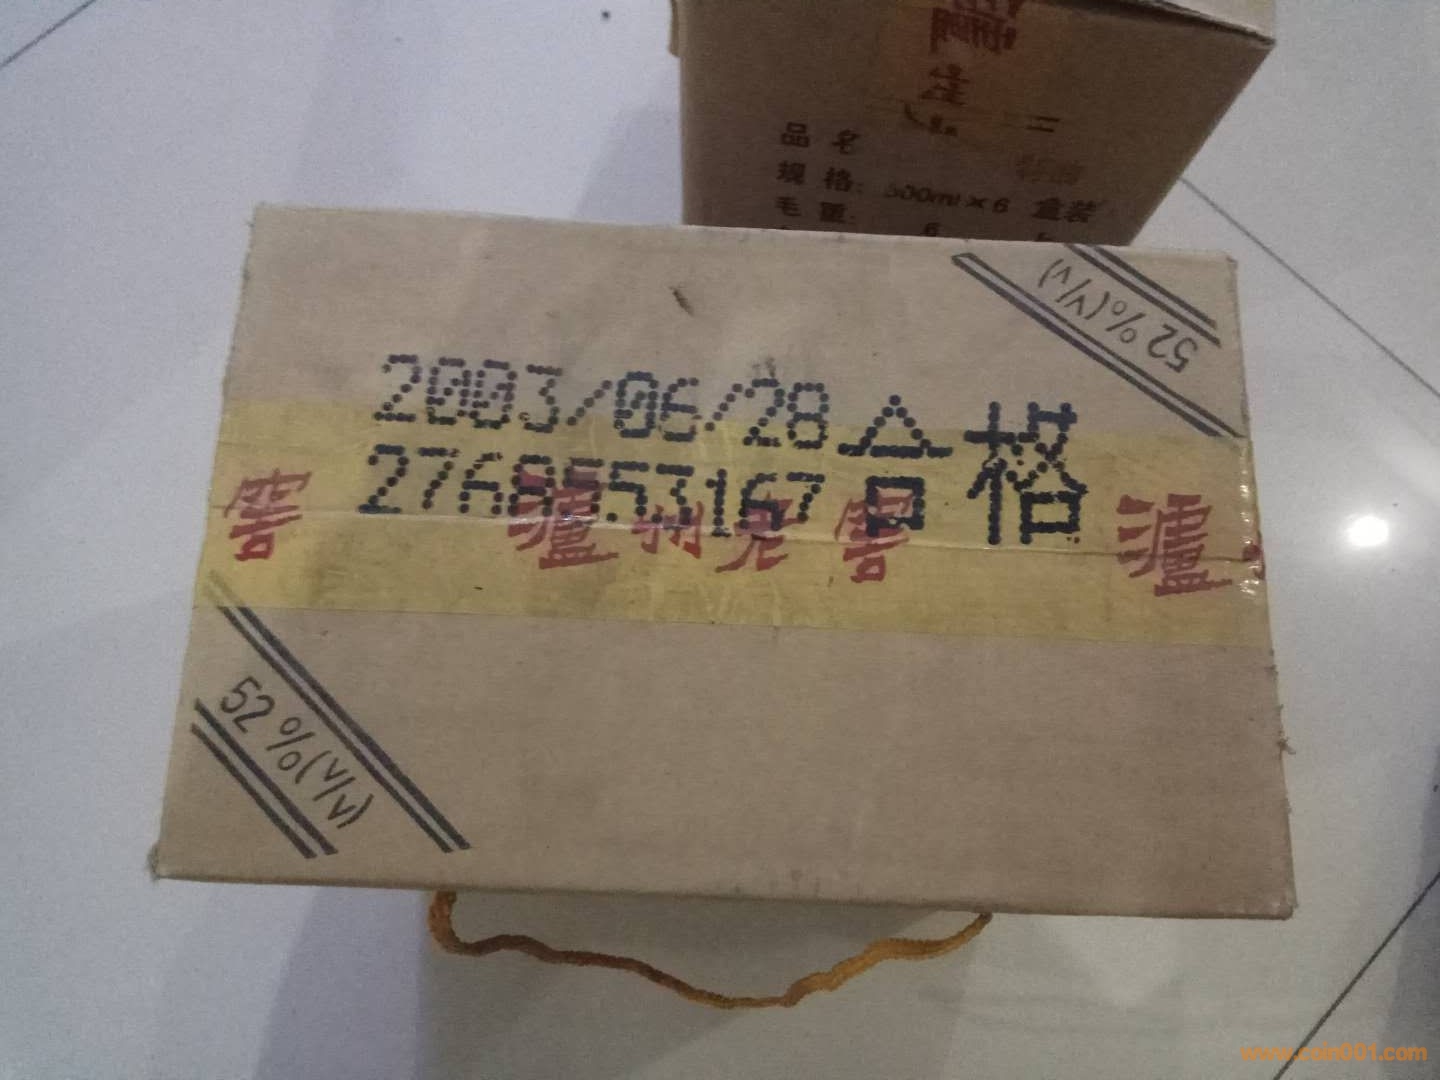 品 名
规 格: 500ml×6 盒装
毛 重: 6
52%(V/V)
2003/06/28 合格
窖 瀘州老窖 瀘
52%(V/V)
www.coin001.com